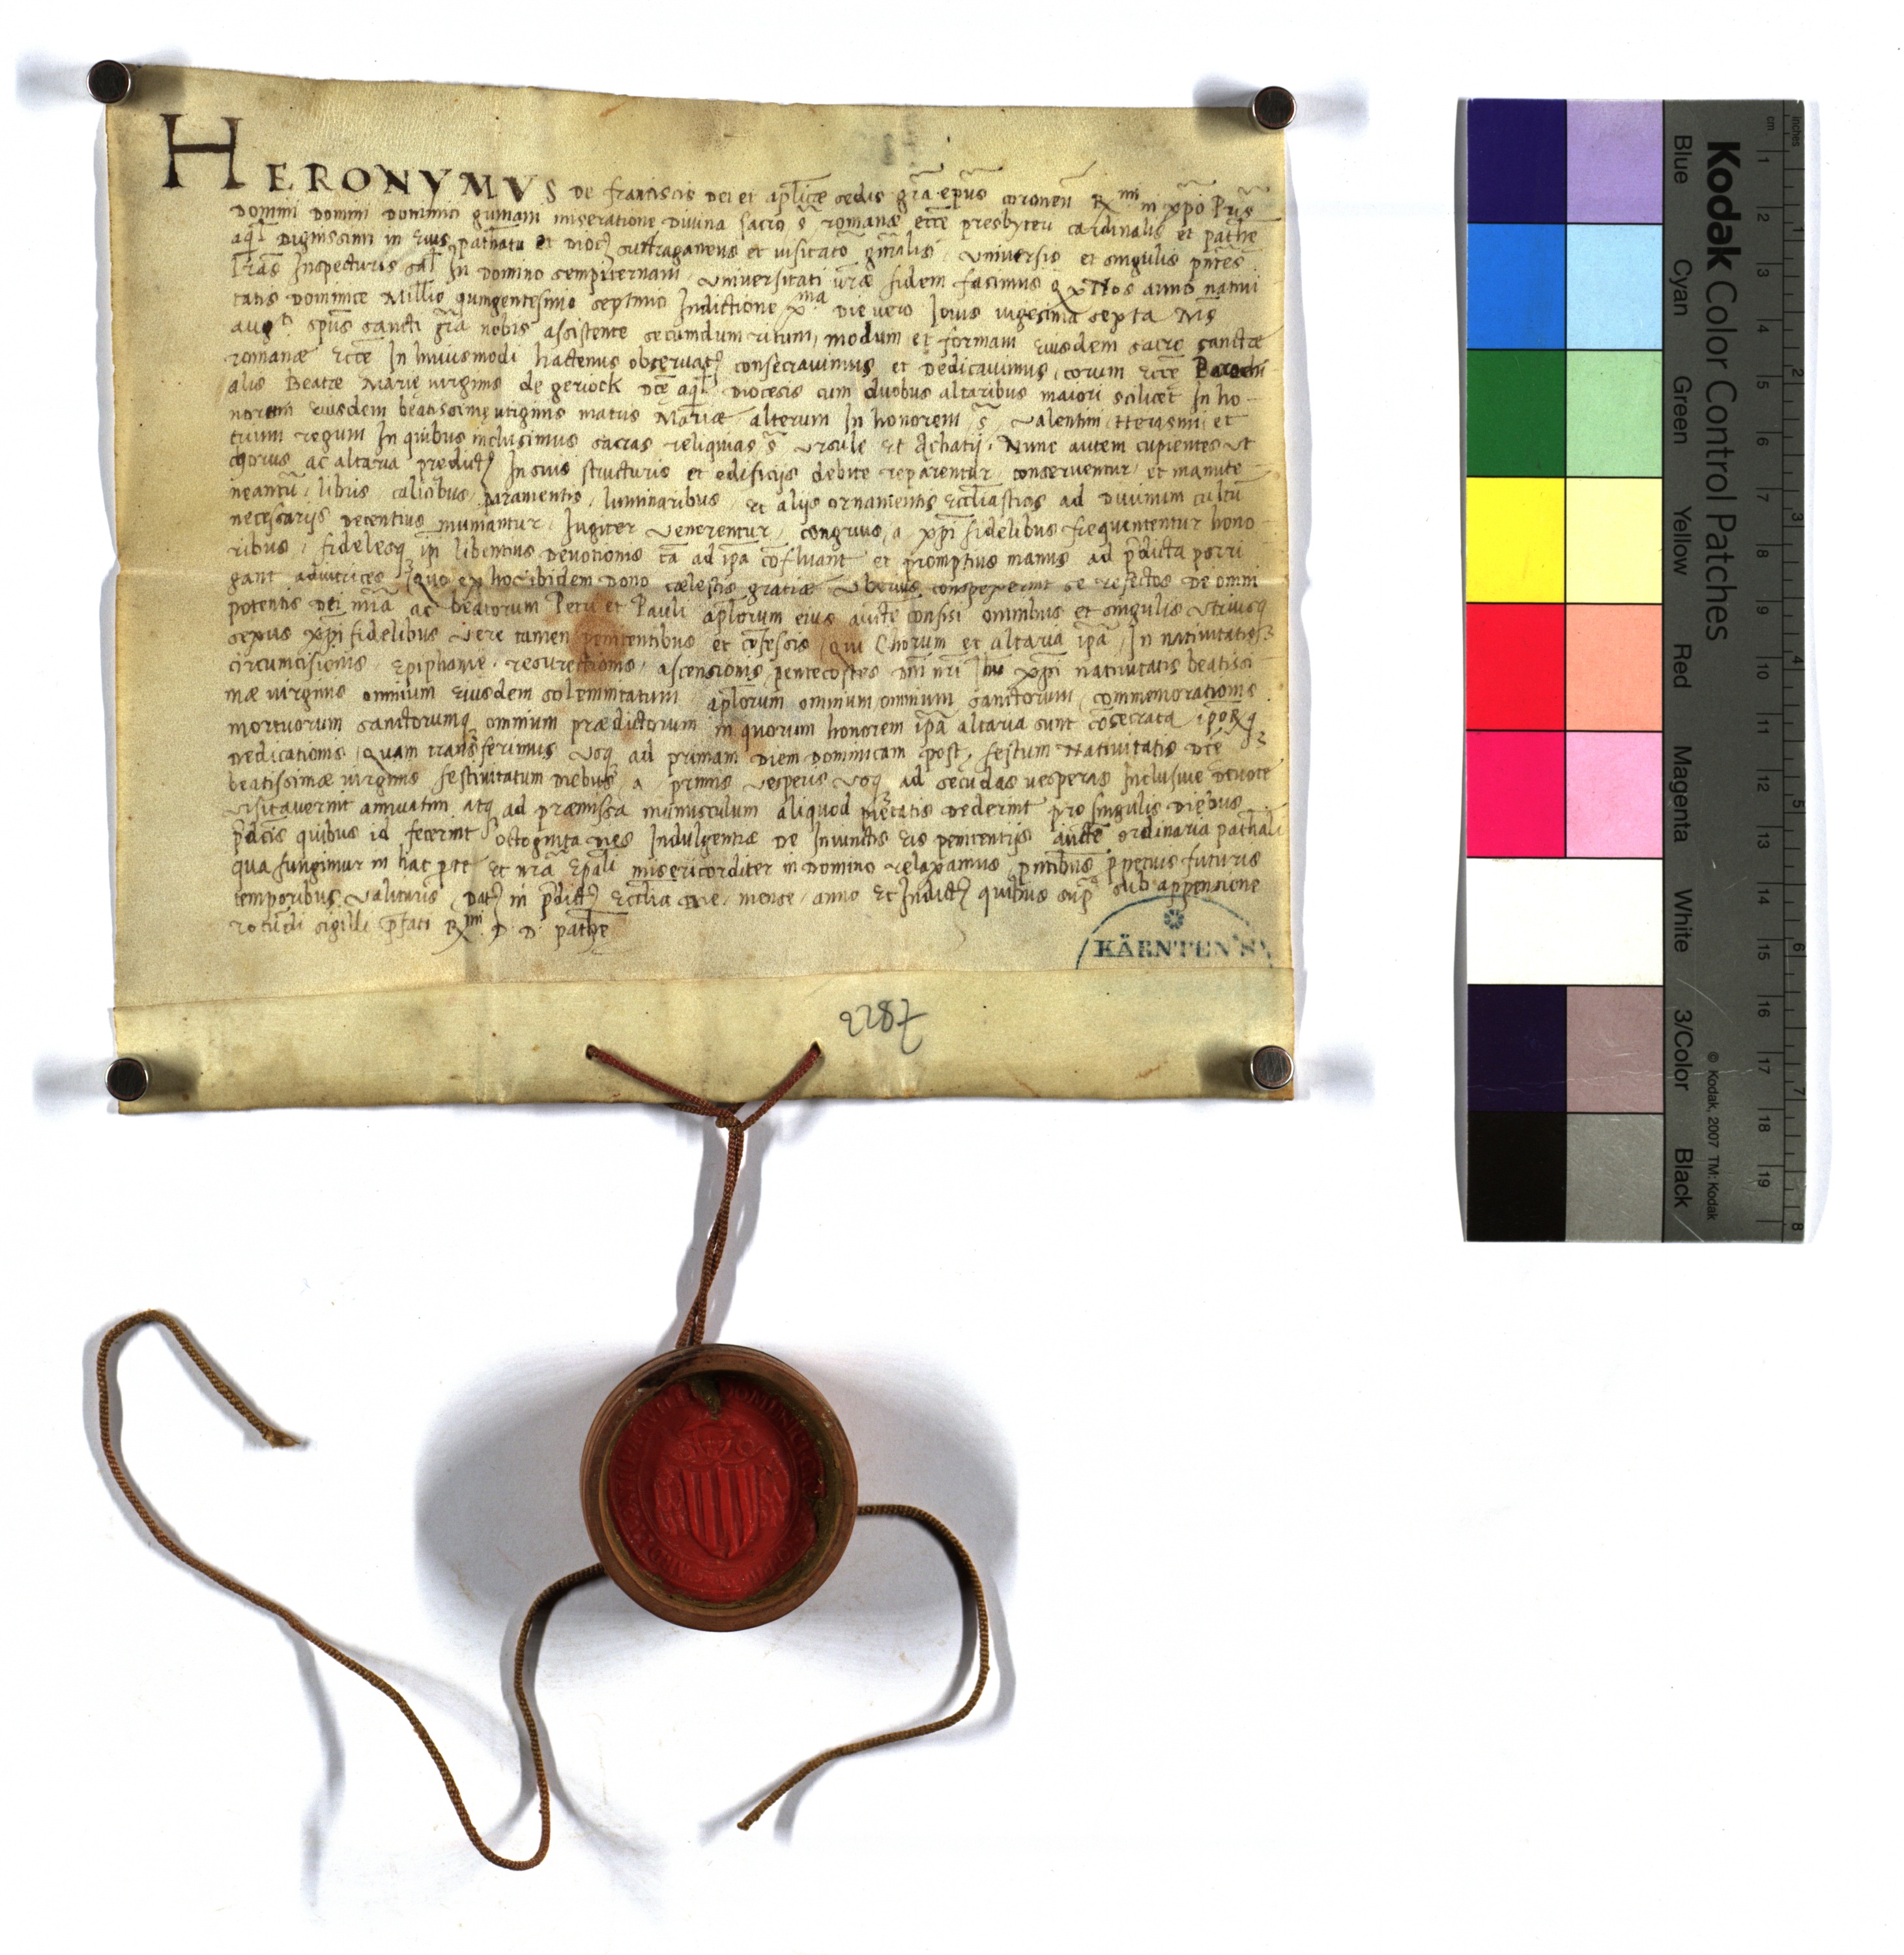 HERONYMVS De franciscis Dei et aplice sedis gra epus coronen Rmi in xpo Pris
Domini Domini Dominici grimani miseratione Divina sacro s romanæ ecce presbyteri cardinalis et pathe
aql Dignissimi in eius pathatu et Dioc suffraganeus et visitator gnralis universis et singulis pntes
lras Inspecturis sal In Domino sempiternam universitati uræ fidem facimus q Nos anno natiui
tatis Dominice Millio quingentesimo septimo Indictione xma Die vero Iouis vigesima sexta Ms
augti spus sancti gra nobis assistente secundum ritum modum et formam eiusdem sacro sanctæ
romanæ ecce In huiusmodi hactenus observat consecravimus et Dedicavimus corum ecce Parochi
alis Beatæ Marie virginis de geriock Dce aql Diocesis cum duobus altaribus maiori scilicet In ho
norem eiusdem beatissime virginis matris Mariæ alterum In honorem s Valentini Herasmi et
trium regum In quibus inclusimus sacras reliquias s Ursule et Achatij Nunc autem cupientes ut
chorus ac altaria predict In suis structuris et edificijs debite reparentur conserventur et manute
neantu libris calicibus paramentis luminaribus et alijs ornamentis eccliasticis ad Diuinum cultu
necessarijs Decentius muniantur Jugiter venerentur congruis a xpi fidelibus frequententur hono
ribus fidelesq ipi libentius Devotionis ca ad ipa cofluant et promptius manus ad pdicta porri
gant adiutrices Quo ex hoc ibidem Dono cælestis gratiæ Uberius conspexerint se refectos De omni
potentis Dei mia ac beatorum Petri et Pauli aplorum eius aucte confisi omnibus et singulis Utriusq
sexus xpi fidelibus vere tamen penitentibus et cofessis qui Chorum et altaria ipa In nativitatis
circumcisionis Epiphanie resurectionis ascensionis pentecostes Dni nri Ihu xpi natiuitatis beatissi
mæ virginis omnium eiusdem solemnitatum aplorum omnium omnium sanctorum commemorationis
mortuorum sanctorumq omnium prædictorum in quorum honorem ipa altaria sunt cosecrata ipoRq
Dedicationis Quam transferimus Usq ad primam Diem Dominicam post festum Nativitatis Dce
beatissimæ virginis festiuitatum Diebus a primis vesperis Usq ad secudas vesperas Inclusiue Deuote
Visitauerint annuatim atq ad præmissa munusculum aliquod pietatis Dederint pro singulis Diebus
pdcis quibus id fecerint octoginta Dies Indulgentiæ De Iniunctis eis penitentijs aucte ordinaria pathali
qua fungimur in hac pte et nra Epali misericorditer in Domino relaxamus pntibus ppetuis futuris
temporibus valituris Dat in pdict Ecclia Die mense anno et Indict quibus supa sub appensione
rotudi sigilli pfati Rmi D D pathe
KÄRNTEN'S
2287
Kodak Color Control Patches
Blue Cyan Green Yellow Red Magenta White 3/Color Black
© Kodak, 2007 TM: Kodak
cm 1 2 3 4 5 6 7 8 9 10 11 12 13 14 15 16 17 18 19
inches 1 2 3 4 5 6 7 8